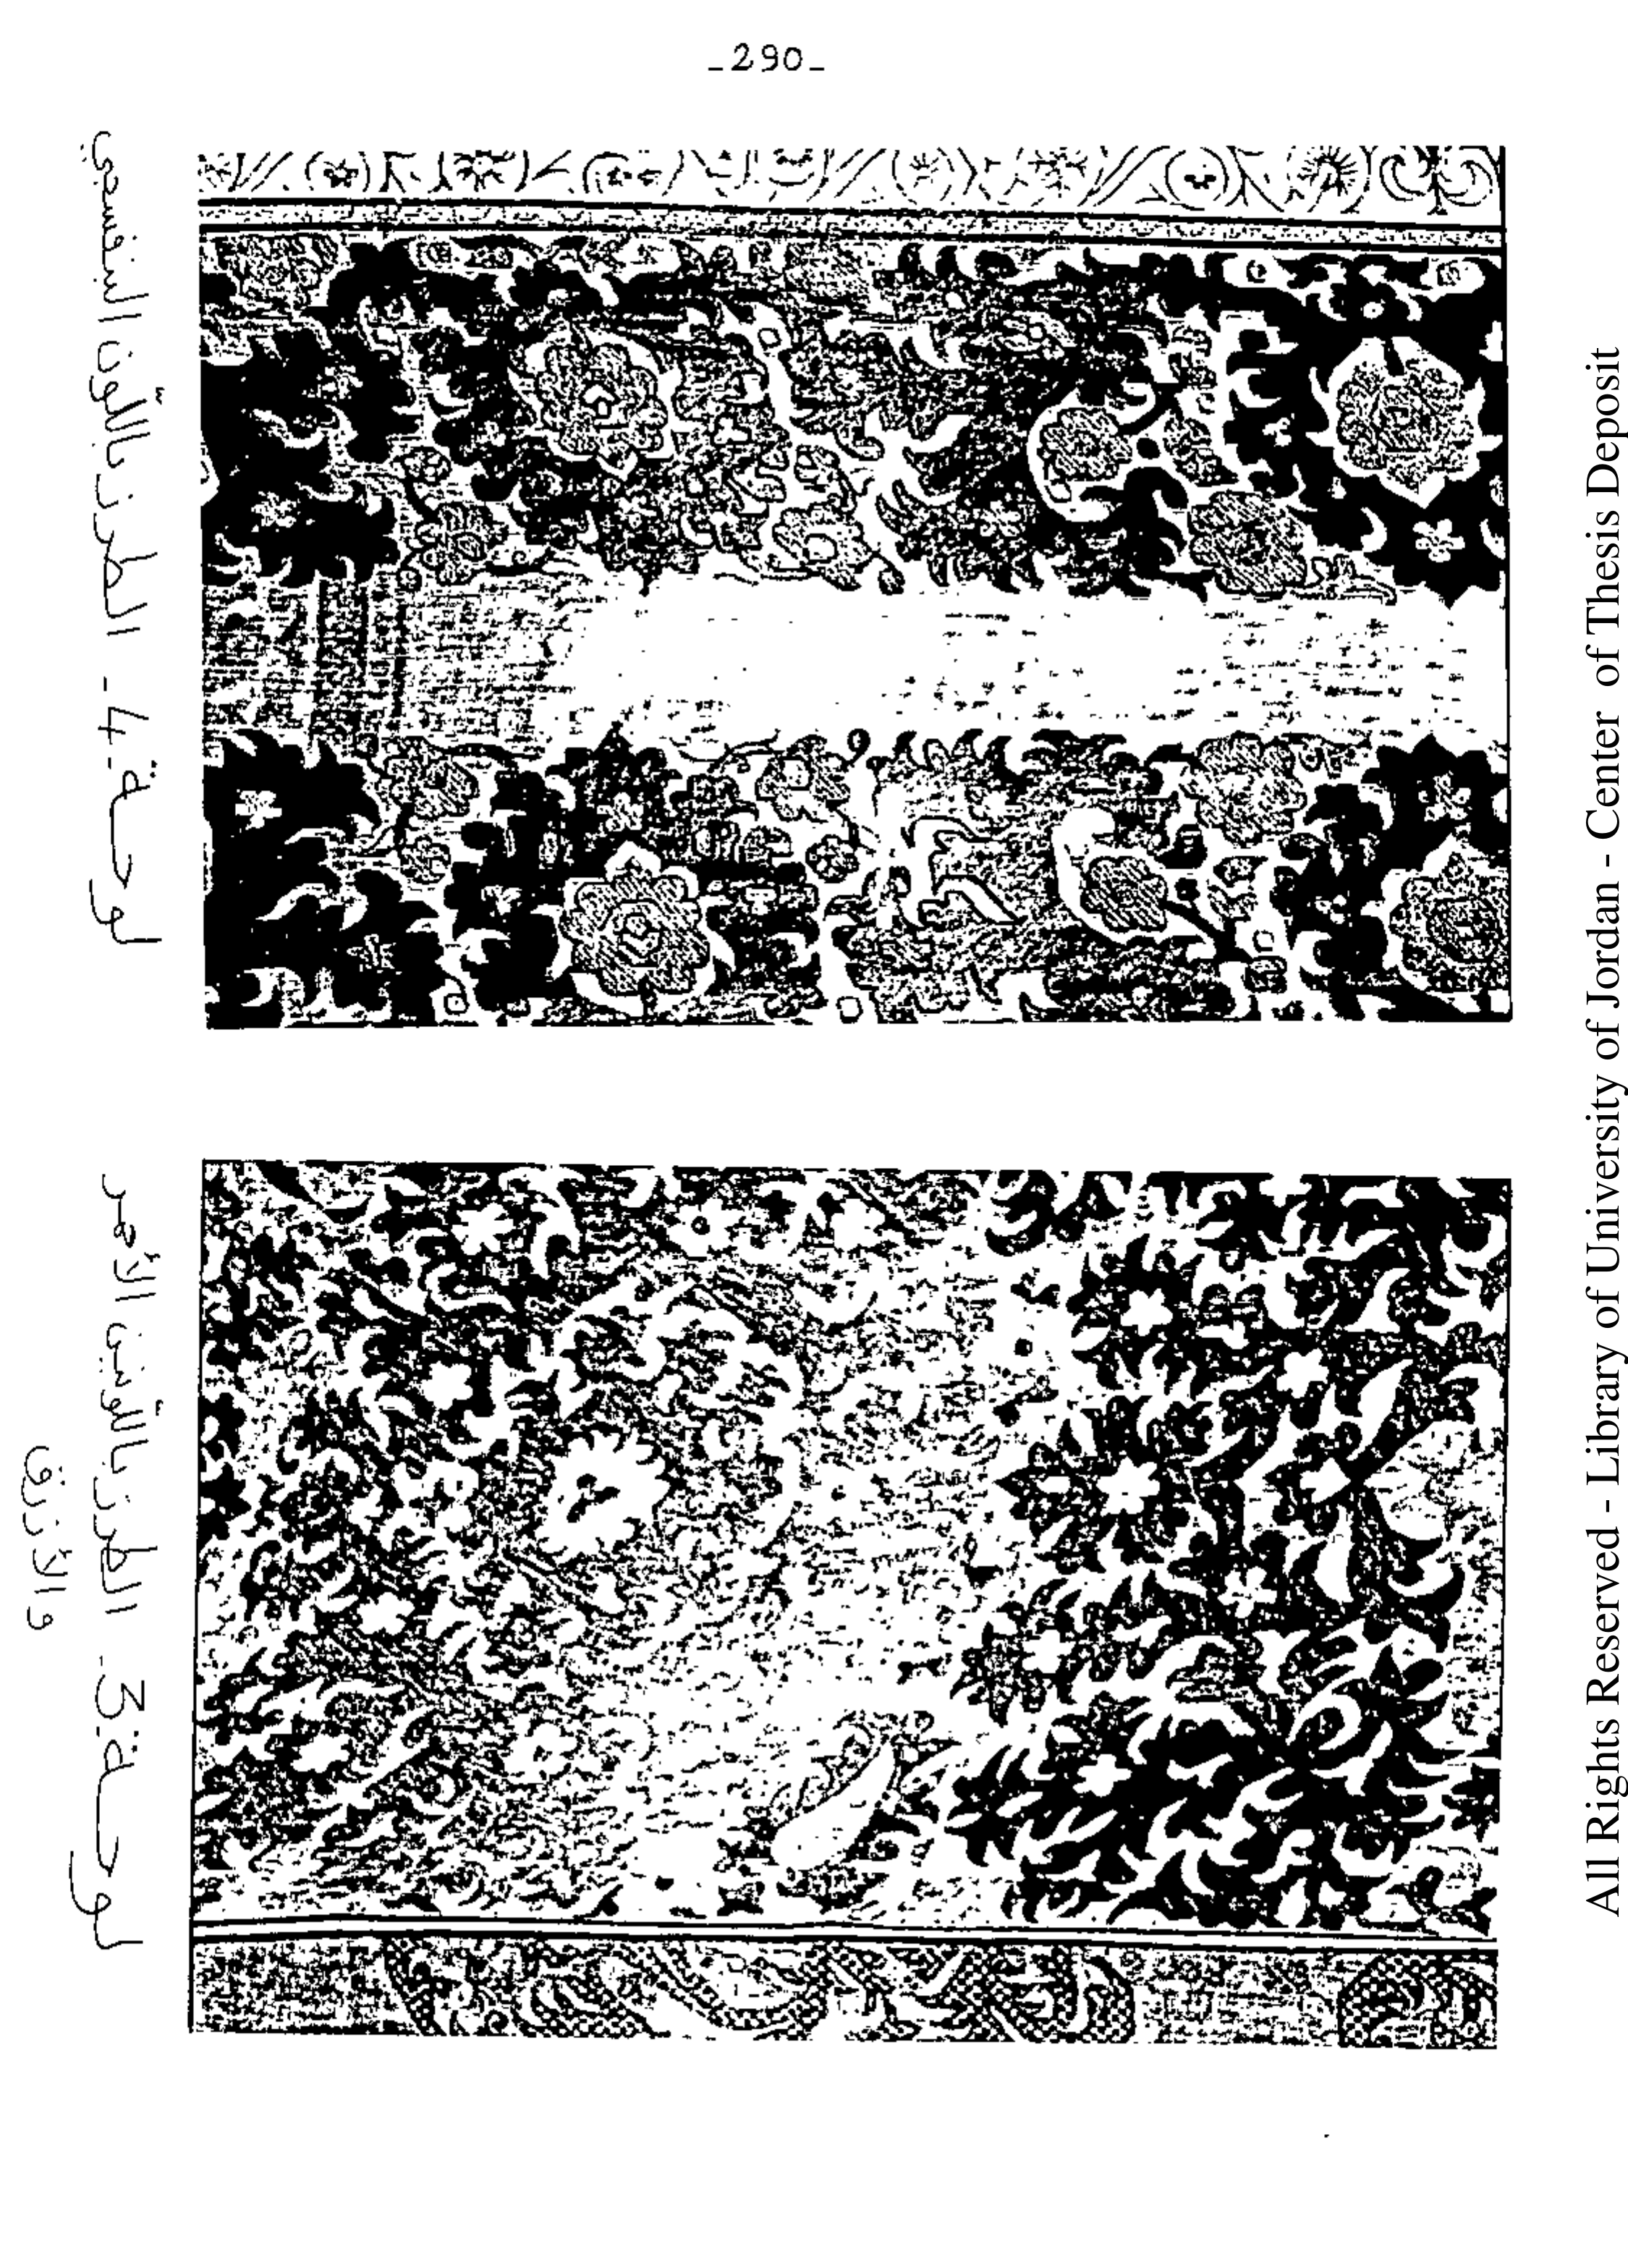 _290_
لوحـــة: 4 - الطرز باللّون البنفسجي
لوحـــة: 3 - الطرز باللّونين الأحمر
و الأزرق
All Rights Reserved - Library of University of Jordan - Center of Thesis Deposit